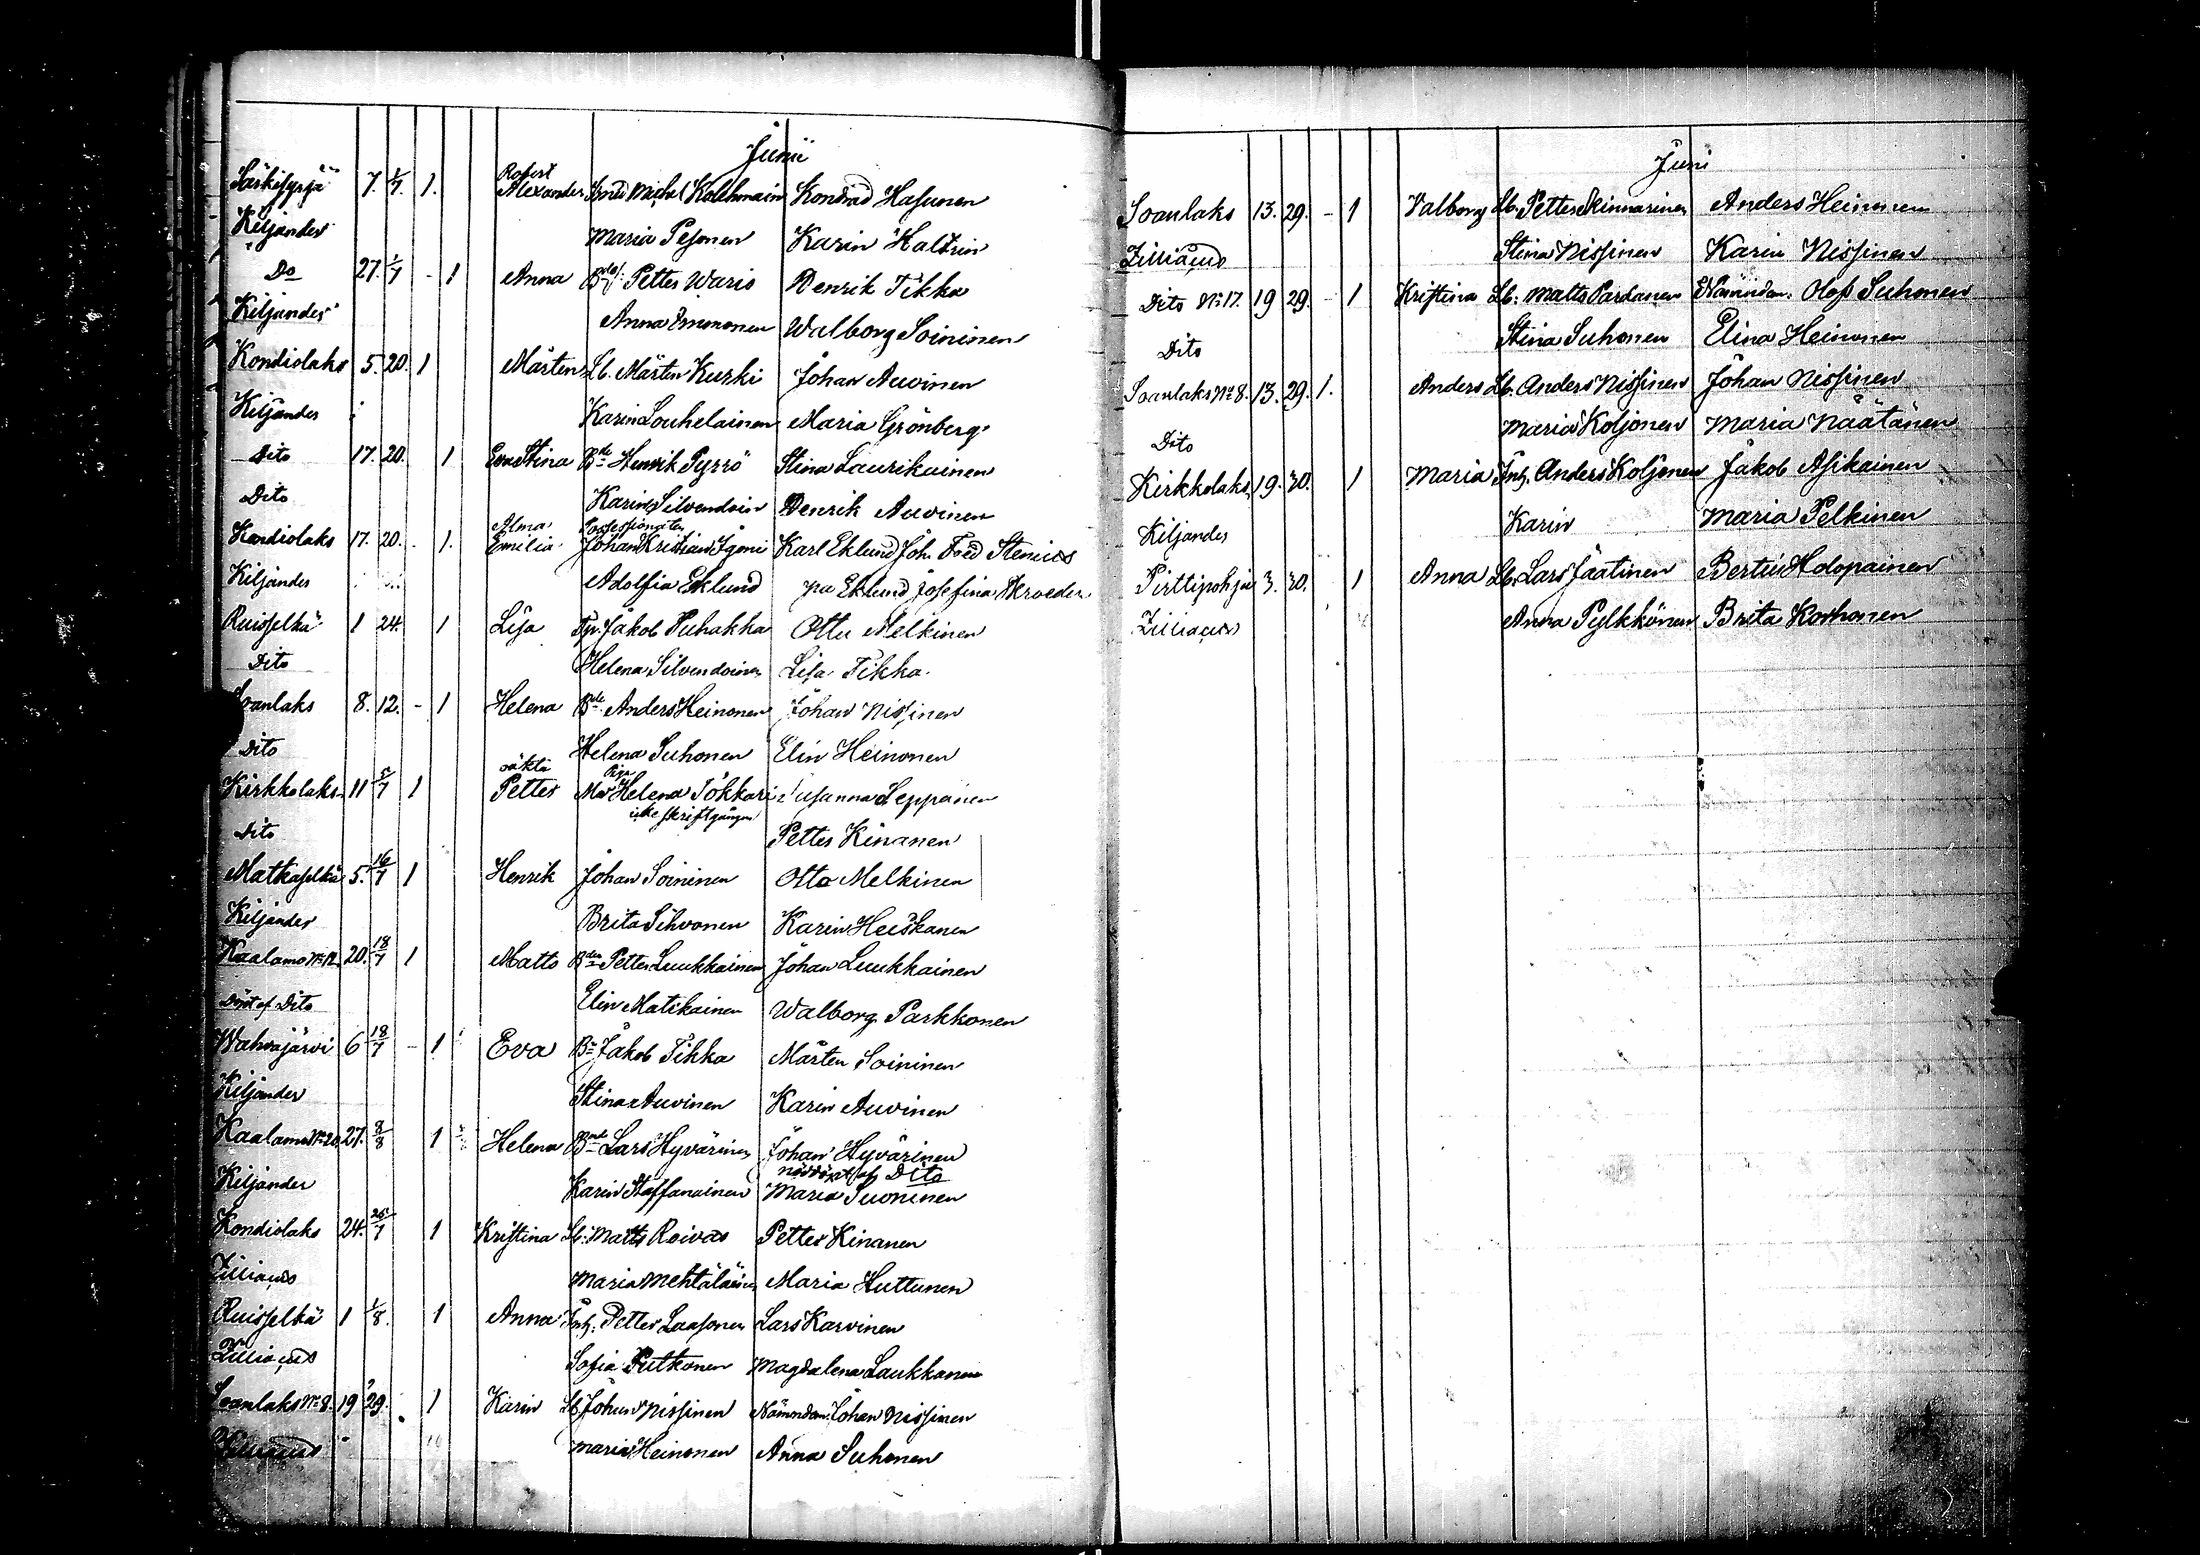 Junii
Särkisyrjä 7. 1/7. 1. Robert Alexander Michel Kolehmain Konrad Hasunen
Kiljander Maria Pesonen Karin Haltsin
Do 27. 1/7 - 1 Anna Petter Waris Henrik Tikka
Kiljander Anna Immonen Walborg Soininen
Kondiolaks 5. 20. 1 Mårten Lb. Mårten Kurki Johan Auvinen
Kiljander Karin Louhelainen Maria Grönberg
Dito 17. 20. 1 Eva Stina Bde Henrik Pyrrö Stina Laurikainen
Dito Karin Silvendoin Henrik Auvinen
Kondiolaks 17. 20. - 1. Alma Emilia Possessionaten Johan Kristian Igoni Karl Eklund Joh. Fred Stenius
Kiljander Adolfia Eklund Eklund Josefina Skroeder
Ruisselkä 1 24 1 Lisa Jakob Puhakka Otto Melkinen
Dito Helena Silvendoinen Lisa Tikka
Soanlaks 8. 12. - 1 Helena Bde Anders Heinonen Johan Nissinen
Dito Helena Suhonen Elin Heinonen
Kirkkolaks 11 5/7 1 oäkta Petter Pig. Helena Tökkäri Susanna Seppänen
icke skriftgången
Dito Petter Kinanen
Matkaselkä 5. 16/7 1 Henrik Johan Soininen Otto Melkinen
Kiljander Brita Sihvonen Karin Heiskanen
Kaalamo No 12. 20. 18/7 1 Matts Bden Petter Luukkainen Johan Luukkainen
Döpt af Dito Elin Matikainen Walborg Parkkonen
Wahvajärvi 6 18/7 - 1 Eva Bn Jakob Tikka Mårten Soininen
Kiljander Stina Auvinen Karin Auvinen
Kaalamo No 20 27. 8/8 1 Helena Bnd Lars Hyvärinen Johan Hyvärinen
nöddöpt af Dito
Kiljander Karin Staffanainen Maria Suoninen
Kondiolaks 24. 25/7 1 Kristina Lb. Matts Roivas Petter Kinanen
Zilliacus Maria Mehtäläinen Maria Huttunen
Ruisselkä 1 1/8. 1 Anna Inh. Petter Laasonen Lars Karvinen
Zilliacus Sofia Putkonen Magdalena Laukkanen
Soanlaks No 8. 19 29. 1 Karin Lb Johan Nissinen Nämndem. Johan Nissinen
Zilliacus Maria Heinonen Anna Suhonen
Juni
Soanlaks 13. 29. - 1 Valborg Lb. Petter Kinnarinen Anders Heinonen
Zilliacus Stina Nissinen Karin Nissinen
Dito No 17. 19 29. - 1 Kristina Lb. Matts Pardanen Nämndem. Olof Suhonen
Dito Stina Suhonen Elina Heinonen
Soanlaks No 8. 13. 29. 1. Anders Lb. Anders Nissinen Johan Nissinen
Dito Maria Koljonen Maria Näätänen
Kirkkolaks 19. 30. 1 Maria Inh. Anders Koljonen Jakob Asikainen
Kiljander Karin Maria Pelkinen
Pirttipohja 3. 30. 1 Anna Lb. Lars Jäätinen Bertil Holopainen
Zilliacus Anna Pylkkönen Brita Korhonen